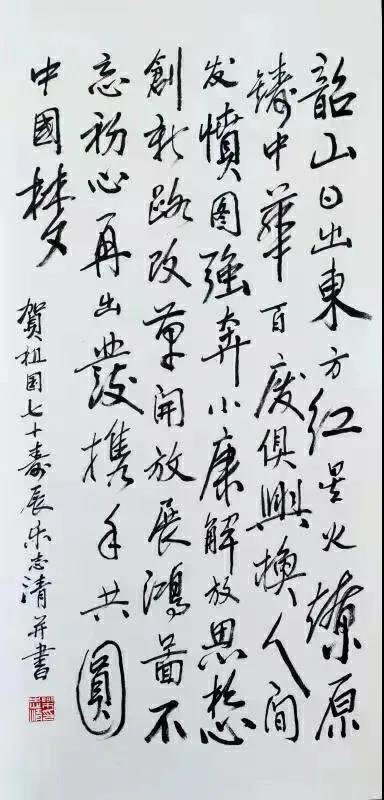 韶山日出東方红星火燎原
鑄中華百废俱興換人间
发憤图強奔小康解放思想
創新路改革開放展鴻啚不
忘初心再出發携手共圓
中國梦
賀祖国七十寿辰乐志清并書